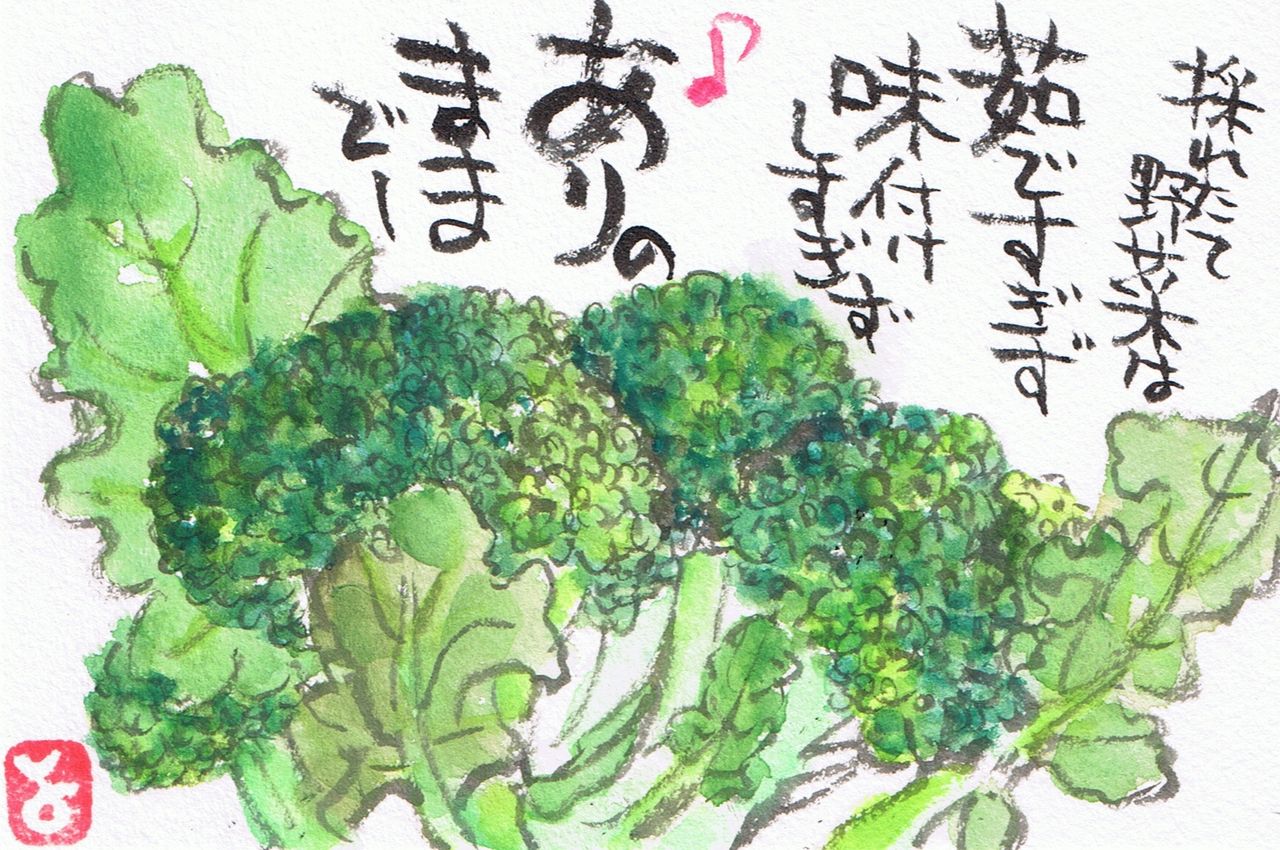 採れたて
野菜は
茹ですぎず
味付け
しすぎず
♪ありの
まま
でー